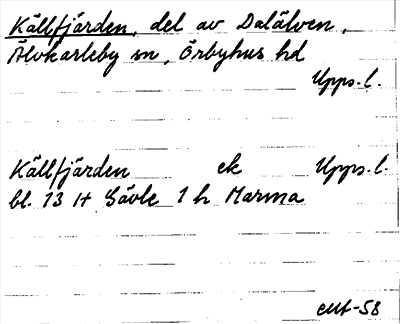 Källfjärden, del av Dalälven,
Älvkarleby sn, Örbyhus hd
Upps. l.
Källfjärden ek Upps. l.
bl. 13 H Gävle 1 h Marma